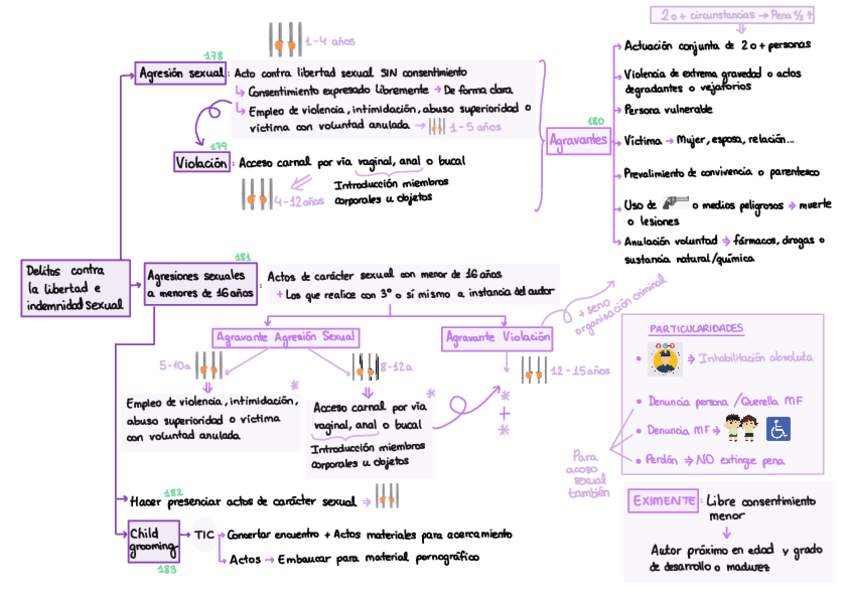 2 o + circunstancias → Pena 1/2 ↑
1-4 años
178
Agresión sexual: Acto contra libertad sexual SIN consentimiento
Consentimiento expresado libremente → De forma clara
Empleo de violencia, intimidación, abuso superioridad o
víctima con voluntad anulada → 1-5 años
179
Violación: Acceso carnal por vía vaginal, anal o bucal
4-12años
Introducción miembros
corporales u objetos
180
Agravantes
Actuación conjunta de 2 o + personas
Violencia de extrema gravedad o actos
degradantes o vejatorios
Persona vulnerable
Víctima → Mujer, esposa, relación...
Prevalimiento de convivencia o parentesco
Uso de o medios peligrosos → muerte
o lesiones
Anulación voluntad → fármacos, drogas o
sustancia natural/química
Delitos contra
la libertad e
indemnidad sexual
181
Agresiones sexuales
a menores de 16 años
: Actos de carácter sexual con menor de 16 años
+ Los que realice con 3º o sí mismo a instancia del autor
Agravante Agresión Sexual
Agravante Violación
+ seno
organización criminal
5-10a
8-12a
12-15años
Empleo de violencia, intimidación,
abuso superioridad o víctima
con voluntad anulada
*
Acceso carnal por vía
vaginal, anal o bucal
Introducción miembros
corporales u objetos
*
*
+
*
182
Hacer presenciar actos de carácter sexual →
Child
grooming
183
TIC
Concertar encuentro + Actos materiales para acercamiento
Actos → Embaucar para material pornográfico
PARTICULARIDADES
• ⇒ Inhabilitación absoluta
• Denuncia persona /Querella MF
• Denuncia MF ⇒
• Perdón ⇒ NO extingue pena
Para
acoso
sexual
también
EXIMENTE: Libre consentimiento
menor
Autor próximo en edad y grado
de desarrollo o madurez